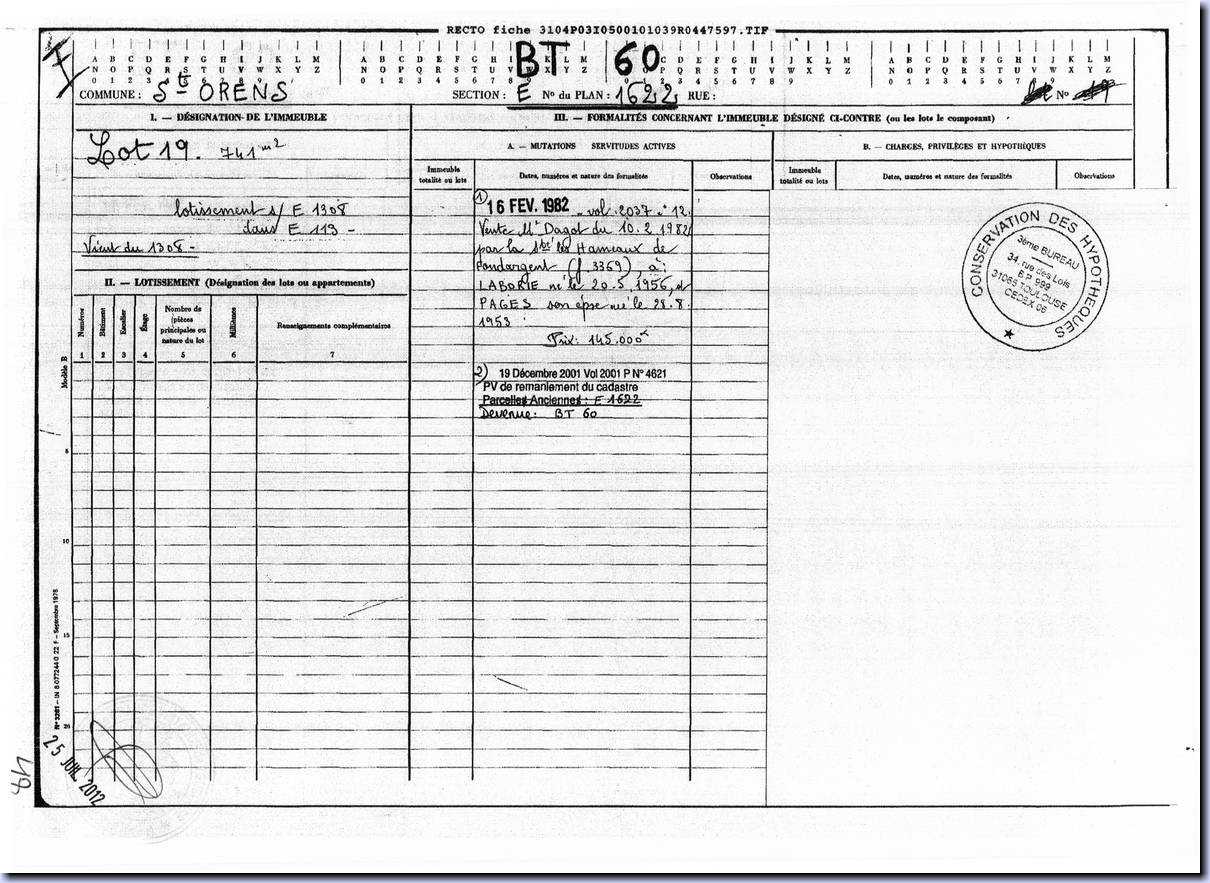 RECTO fiche 3104P03I0500101039R0447597.TIF
BT 60
A B C D E F G H I J K L M
N O P Q R S T U V W X Y Z
0 1 2 3 4 5 6 7 8 9
COMMUNE : St ORENS SECTION : E No du PLAN : 1622 RUE : No
I. — DÉSIGNATION DE L'IMMEUBLE
Lot 19. 741 m2
lotissement s/ E 1308
dans E 113 -
Vient du 1308 -
II. — LOTISSEMENT (Désignation des lots ou appartements)
Numéros Bâtiment Escalier Étage Nombre de pièces principales ou nature du lot Millièmes Renseignements complémentaires
1 2 3 4 5 6 7
III. — FORMALITÉS CONCERNANT L'IMMEUBLE DÉSIGNÉ CI-CONTRE (ou les lots le composant)
A. — MUTATIONS SERVITUDES ACTIVES
Immeuble totalité ou lots Dates, numéros et nature des formalités Observations
1) 16 FEV. 1982 - vol. 2037 n° 12.
Vente Me Dagot du 10.2.1982
par la Sté les Hameaux de
Fondargent (f. 3369), à :
LABORIE né le 20.5.1956, et
PAGES son épse née le 28.8.
1953
Prix : 145.000 F
2) 19 Décembre 2001 Vol 2001 P N° 4621
PV de remaniement du cadastre
Parcelles Anciennes : E 1622
Devenue : BT 60
B. — CHARGES, PRIVILÈGES ET HYPOTHÈQUES
Immeuble totalité ou lots Dates, numéros et nature des formalités Observations
CONSERVATION DES HYPOTHEQUES
3ème BUREAU
34, rue des Lois
B.P. 999
31066 TOULOUSE
CEDEX 06
Modèle B
5
10
15
20
N° 3261 — IN 8 077244 0 22 F — Septembre 1978
25 JUIL. 2012